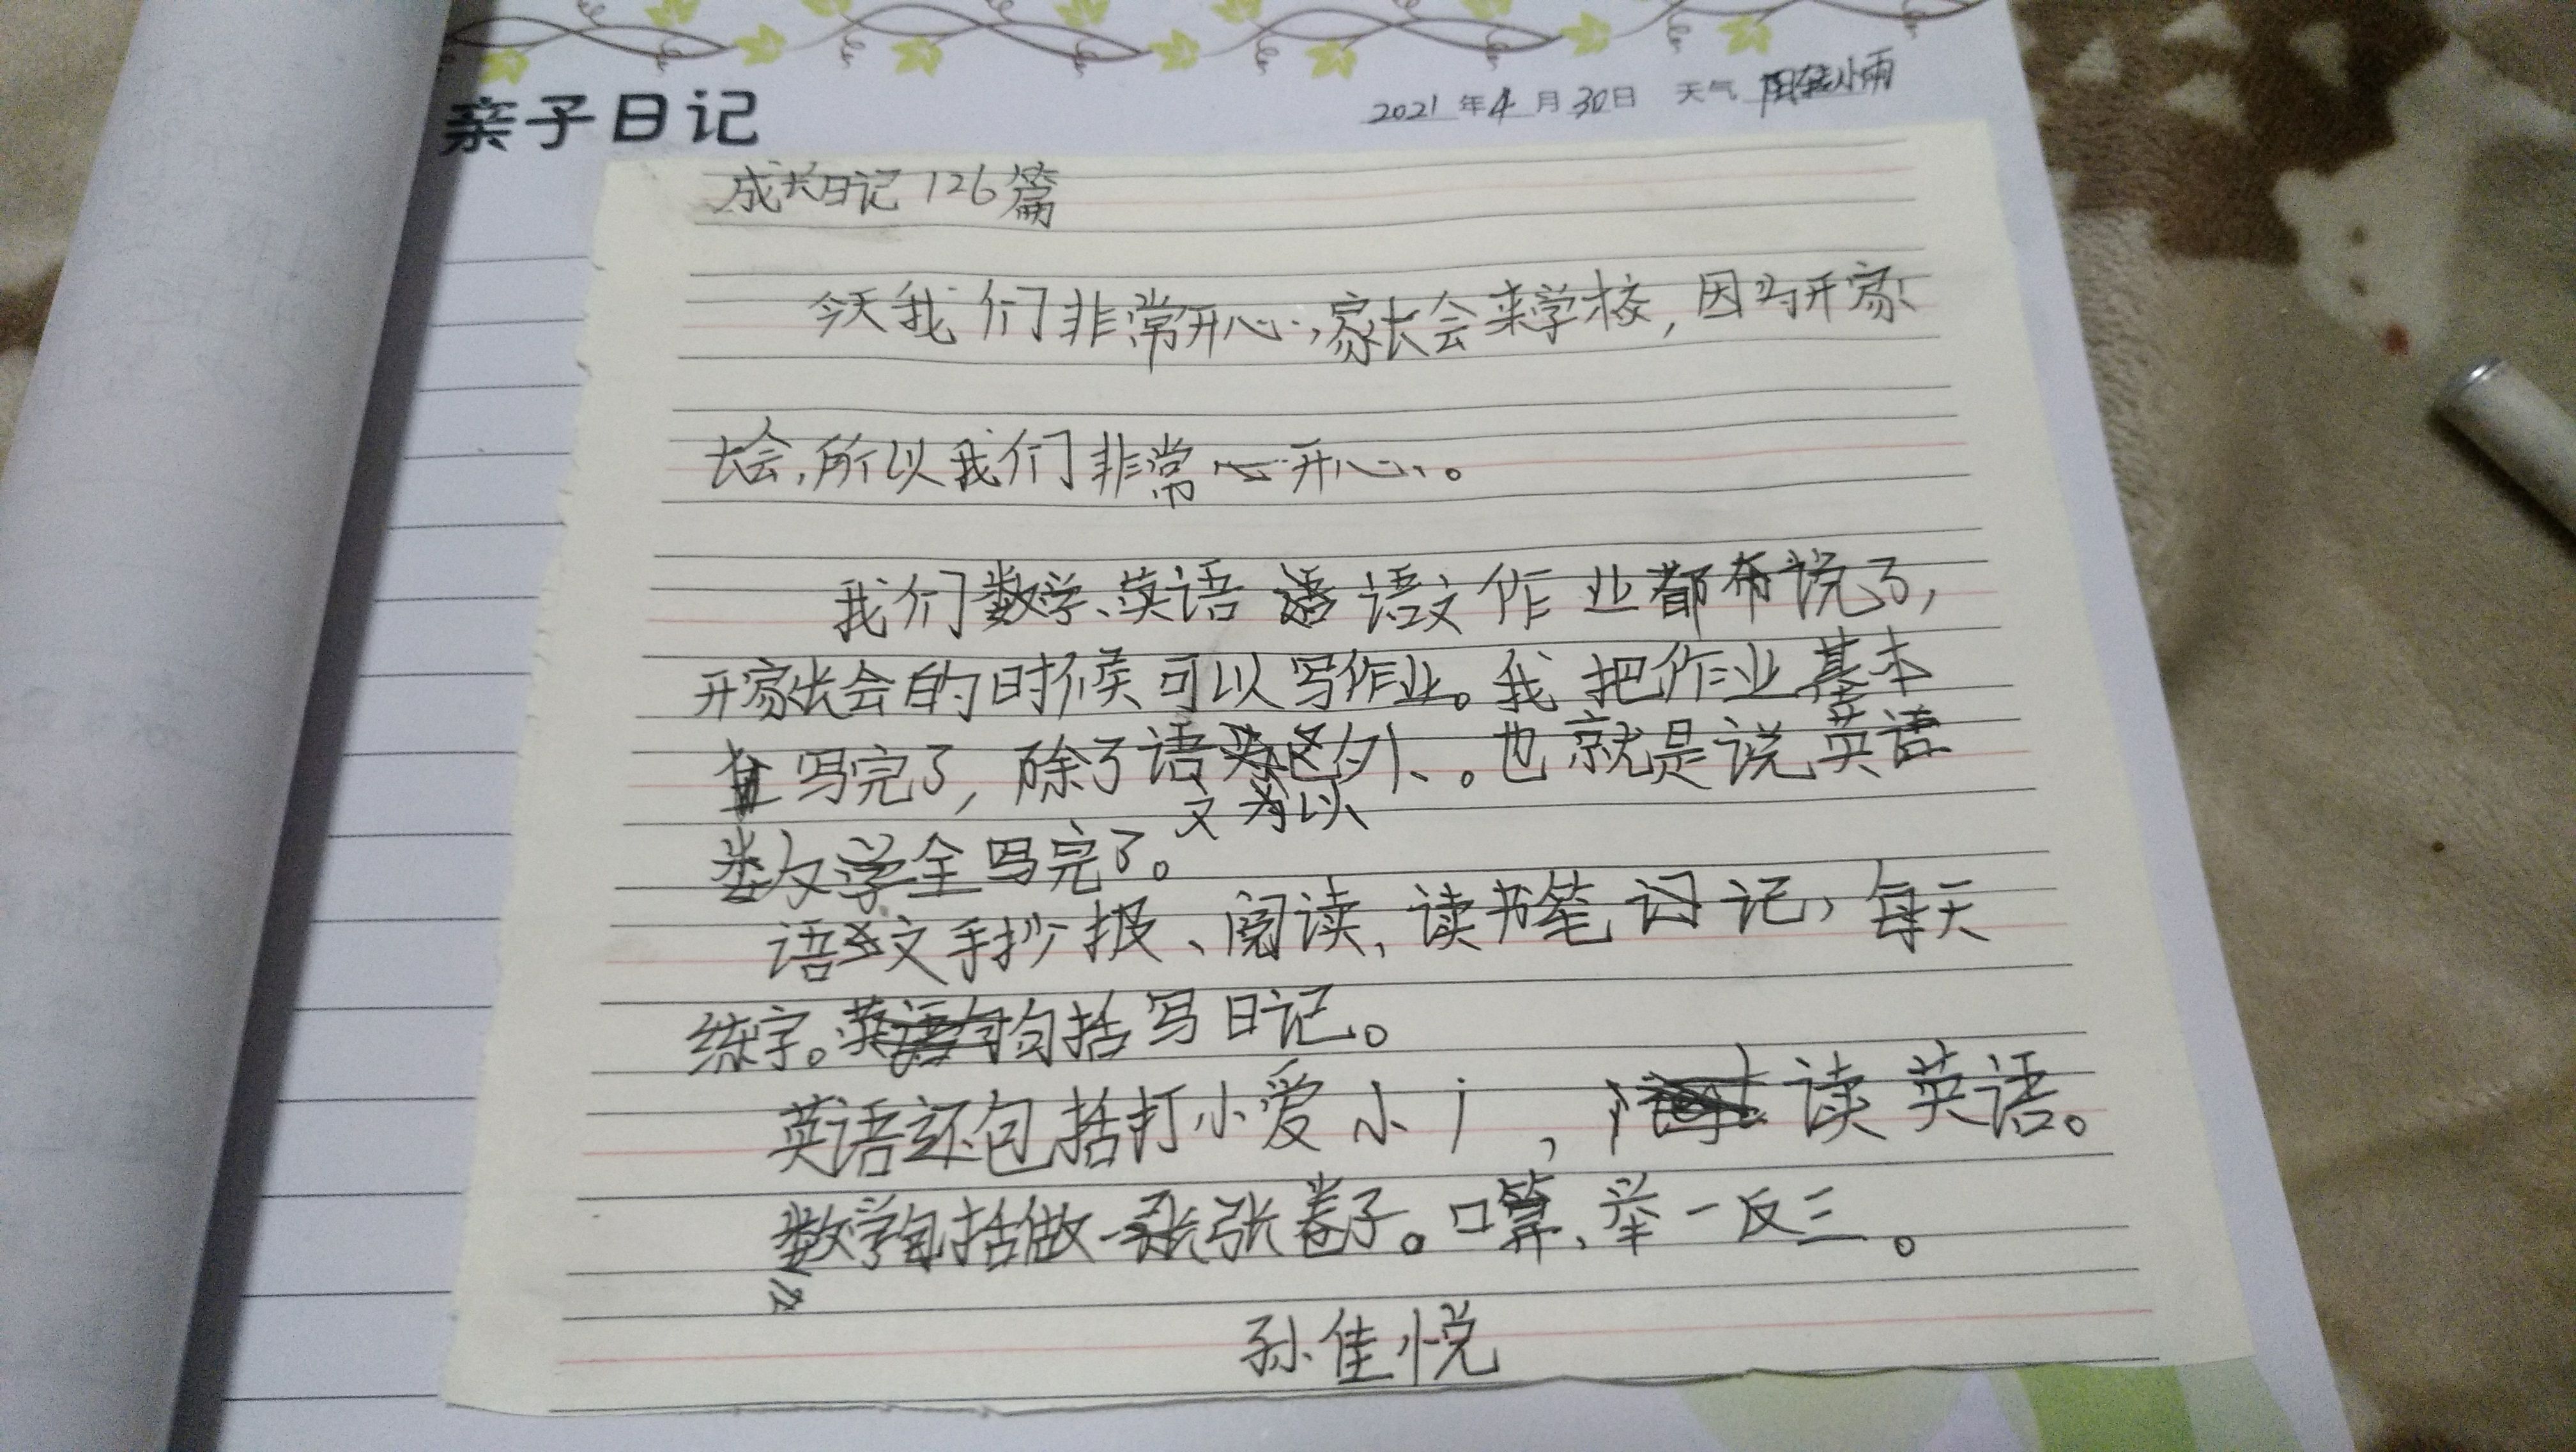 亲子日记
2021年4月30日 天气 阴转小雨
成长日记126篇
今天我们非常开心,家长会来学校,因为开家
长会,所以我们非常开心。
我们数学、英语 语文作业都布说了,
开家长会的时候可以写作业。我把作业基本
写完了,除了语 外。也就是说英语
文为以
数学全写完了。
语文手抄报、阅读,读书笔记,每天
练字。包括写日记。
英语还包括打小爱小j,读英语。
数学包括做一张张卷子。口算、举一反三。
孙佳悦